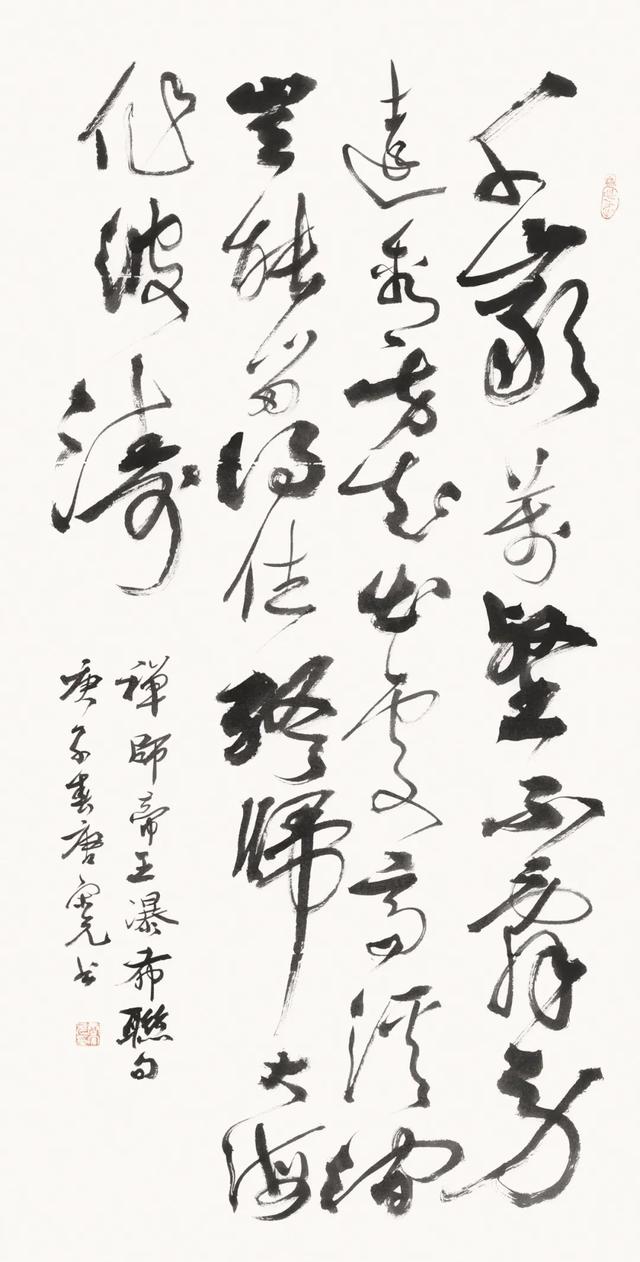 千巖萬壑不辭勞
遠看方知出處高溪澗
豈能留得住終歸大海
作波濤
禪師帝王瀑布聯句
庚子春唐书